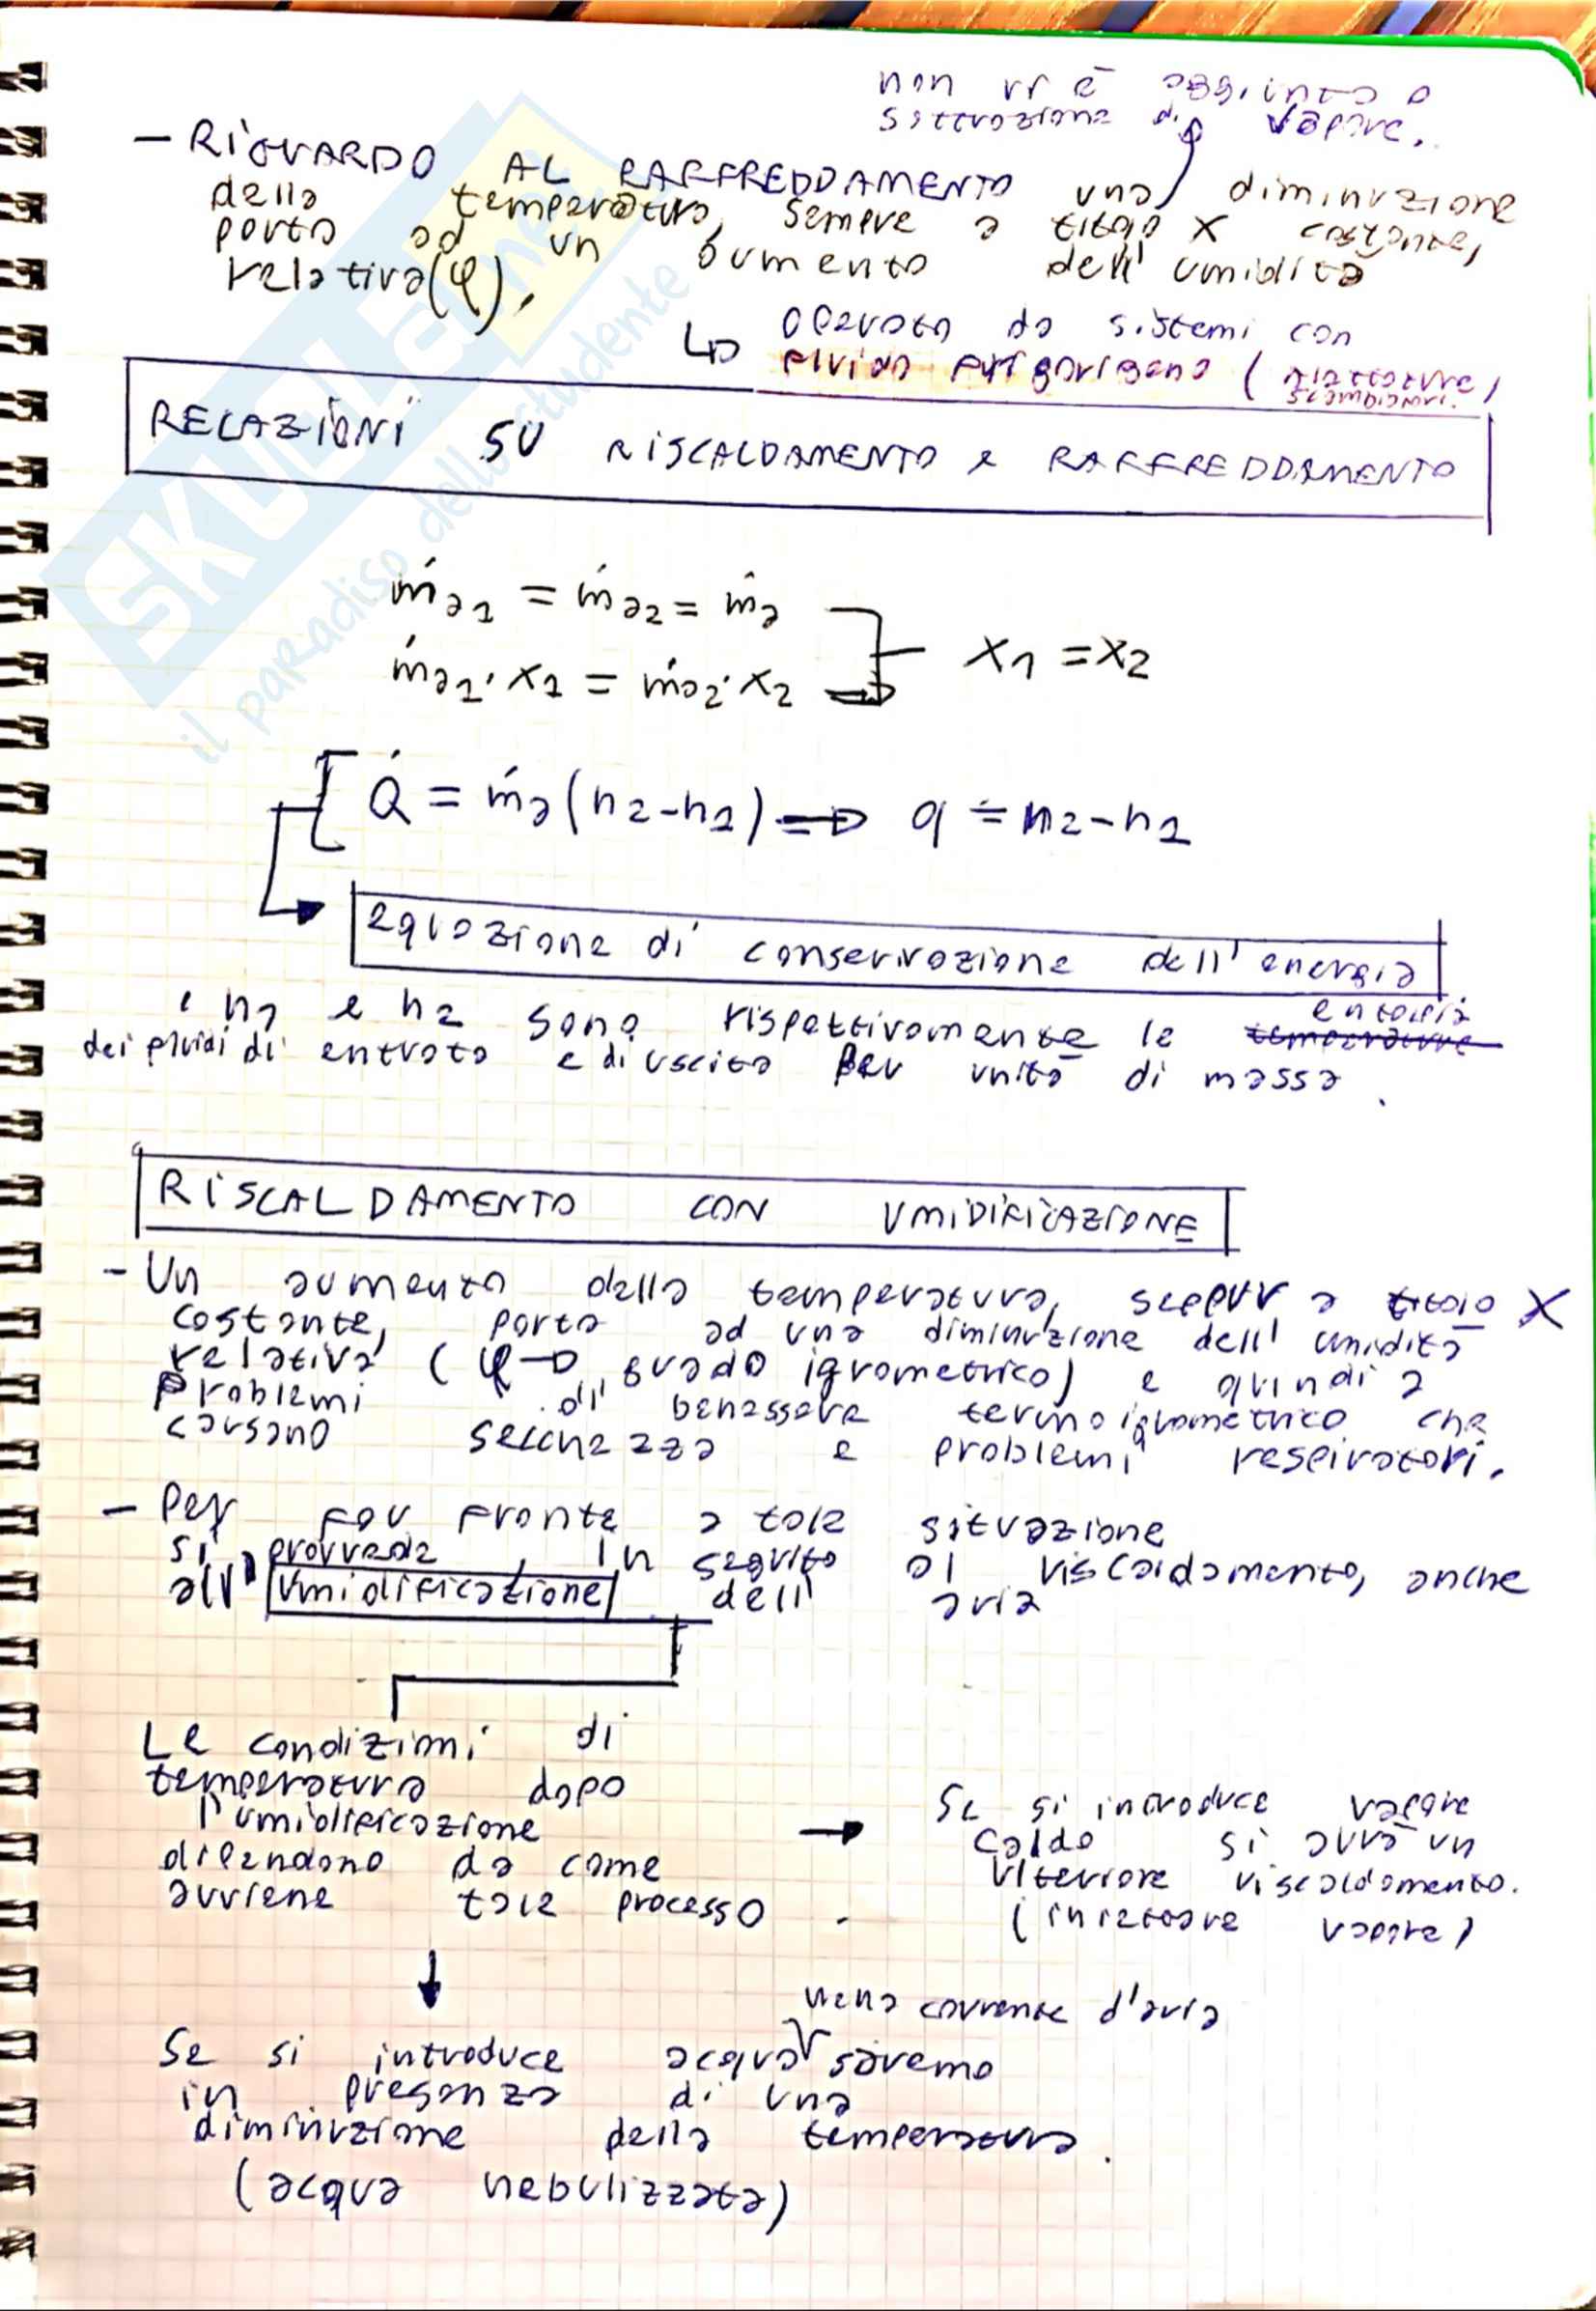 non vi è aggiunta o
sottrazione di vapore.
- RIGUARDO AL RAFFREDDAMENTO una diminuzione
della temperatura, sempre a titolo x costante,
porta ad un aumento dell' umidità
relativa (φ).
operato da sistemi con
fluido frigorigeno (
scambiatori.
RELAZIONI SU RISCALDAMENTO e RAFFREDDAMENTO
ṁa1 = ṁa2 = ṁa
ṁa1·x1 = ṁa2·x2 ⇒ x1 = x2
Q̇ = ṁa(h2-h1) ⇒ q = h2-h1
equazione di conservazione dell' energia
h1 e h2 sono rispettivamente le temperature entalpia
dei fluidi di entrata e di uscita per unità di massa.
RISCALDAMENTO CON UMIDIFICAZIONE
- Un aumento della temperatura, seppur a titolo X
costante, porta ad una diminuzione dell' umidità
relativa (φ → grado igrometrico) e quindi a
problemi di benessere termoigrometrico che
causano secchezza e problemi respiratori.
- Per far fronte a tale situazione
si provvede, in seguito al riscaldamento, anche
all' umidificazione dell' aria
Le condizioni di
temperatura dopo
l'umidificazione
dipendono da come
avviene tale processo.
→ Se si introduce vapore
caldo si avrà un
ulteriore riscaldamento.
(iniettare vapore)
↓
nella corrente d'aria
Se si introduce acqua saremo
in presenza di una
diminuzione della temperatura.
(acqua nebulizzata)
SKUOLA.net
il paradiso dello studente